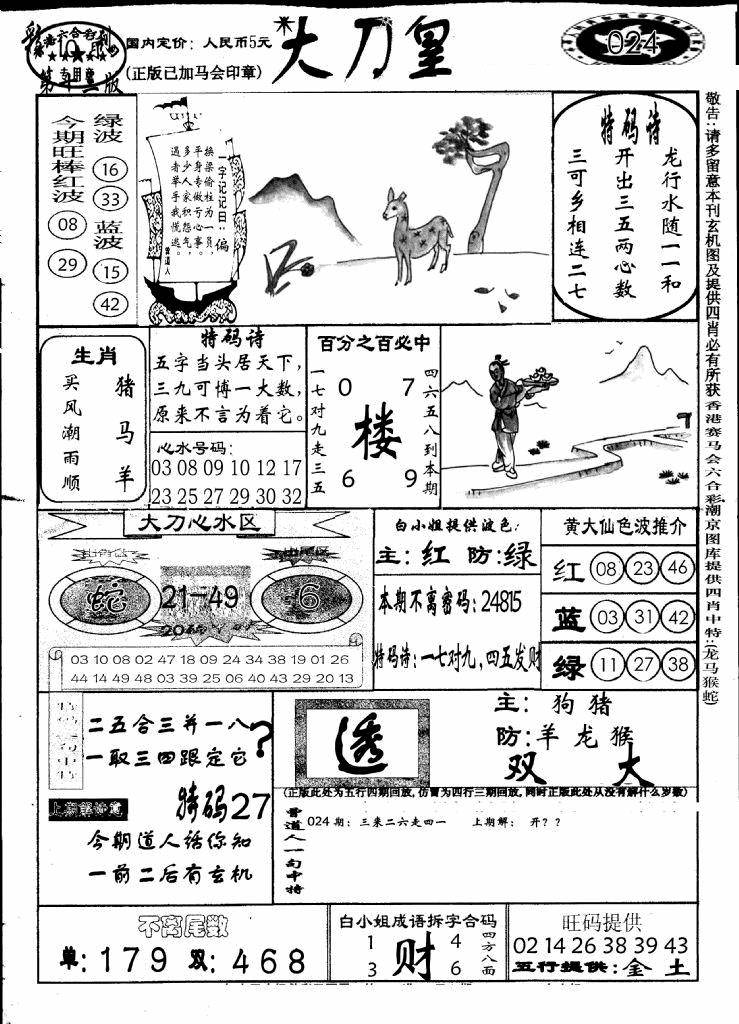 国内定价：人民币5元
(正版已加马会印章)
专用章
大刀皇
024
今期旺棒红波
08
29
绿波
16
33
蓝波
15
42
一字记记曰：偏
换梁偷柱为一员，
平身专做亏心事。
多少人家积怨气，
遇者举手我慌逃。
曾道人
特码诗
龙行水随一一和
开出三五两心数
三可乡相连二七
敬告：请多留意本刊玄机图及提供四肖必有所获 香港赛马会六合彩潮京图库提供四肖中特：(龙马猴蛇)
生肖
买风潮雨顺
猪
马
羊
特码诗
五字当头居天下，
三九可博一大数，
原来不言为着它。
心水号码：
03 08 09 10 12 17
23 25 27 29 30 32
百分之百必中
一七对九走三五
0 7
楼
6 9
四六五八到本期
大刀心水区
蛇
21-49
6
03 10 08 02 47 18 09 24 34 38 19 01 26
44 14 49 48 03 36 45 11 43 29 20 13
白小姐提供波色：
主：红 防：绿
本期不离密码：24815
特码诗：一七对九，四五发财
黄大仙色波推介
红 08 23 46
蓝 03 31 42
绿 11 27 38
二五合三并一八
一取三四跟定它
?
特码27
今期道人话你知
一前二后有玄机
透
主：狗猪
防：羊龙猴
双 大
(正版此处为五行四期回放，仿冒为四行三期回放，同时正版此处从没有解什么岁数)
曾道人一句中特
024期：三来二六走四一 上期解： 开？？
不离尾数
单：179 双：468
白小姐成语拆字合码
1 4
财
3 6
四方八面
旺码提供
02 14 26 38 39 43
五行提供：金 土